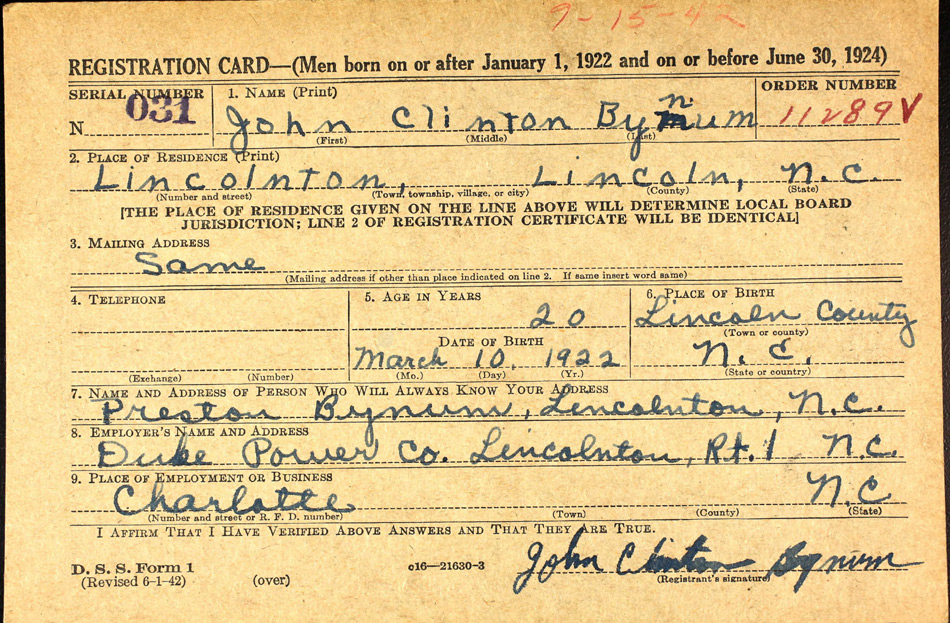 9-15-42
REGISTRATION CARD—(Men born on or after January 1, 1922 and on or before June 30, 1924)
SERIAL NUMBER 1. NAME (Print) ORDER NUMBER
N 031 John Clinton Bynum 11289
(First) (Middle) (Last)
2. PLACE OF RESIDENCE (Print)
Lincolnton, Lincoln, N.C.
(Number and street) (Town, township, village, or city) (County) (State)
[THE PLACE OF RESIDENCE GIVEN ON THE LINE ABOVE WILL DETERMINE LOCAL BOARD
JURISDICTION; LINE 2 OF REGISTRATION CERTIFICATE WILL BE IDENTICAL]
3. MAILING ADDRESS
Same
(Mailing address if other than place indicated on line 2. If same insert word same)
4. TELEPHONE 5. AGE IN YEARS 6. PLACE OF BIRTH
20 Lincoln County
(Town or county)
DATE OF BIRTH
March 10, 1922 N.C.
(Exchange) (Number) (Mo.) (Day) (Yr.) (State or country)
7. NAME AND ADDRESS OF PERSON WHO WILL ALWAYS KNOW YOUR ADDRESS
Preston Bynum, Lincolnton, N.C.
8. EMPLOYER'S NAME AND ADDRESS
Duke Power Co. Lincolnton, Rt. 1 N.C.
9. PLACE OF EMPLOYMENT OR BUSINESS
Charlotte N.C
(Number and street or R. F. D. number) (Town) (County) (State)
I AFFIRM THAT I HAVE VERIFIED ABOVE ANSWERS AND THAT THEY ARE TRUE.
John Clinton Bynum
D. S. S. Form 1 c16—21630-3 (Registrant's signature)
(Revised 6-1-42) (over)